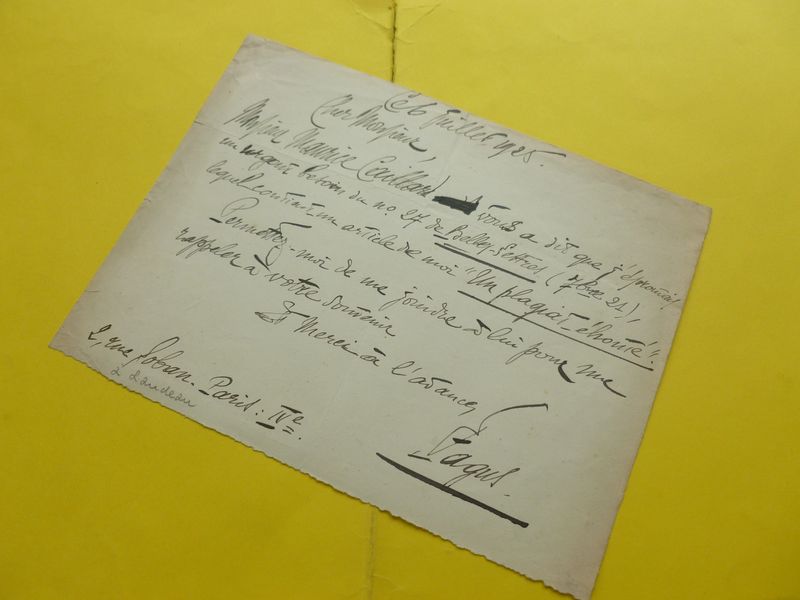 Ce 6 juillet 1925.
Cher Monsieur
Monsieur Maurice Caillard vous a dit que j'éprouvais
un urgent besoin du no. 27 de Belles-Lettres (7bre 21),
lequel contient un article de moi "Un plagiat éhonté".
Permettez-moi de me joindre à lui pour me
rappeler à votre souvenir
Et Merci à l'avance
Fagus.
2, rue Loban. Paris: IVe.
à Landeau